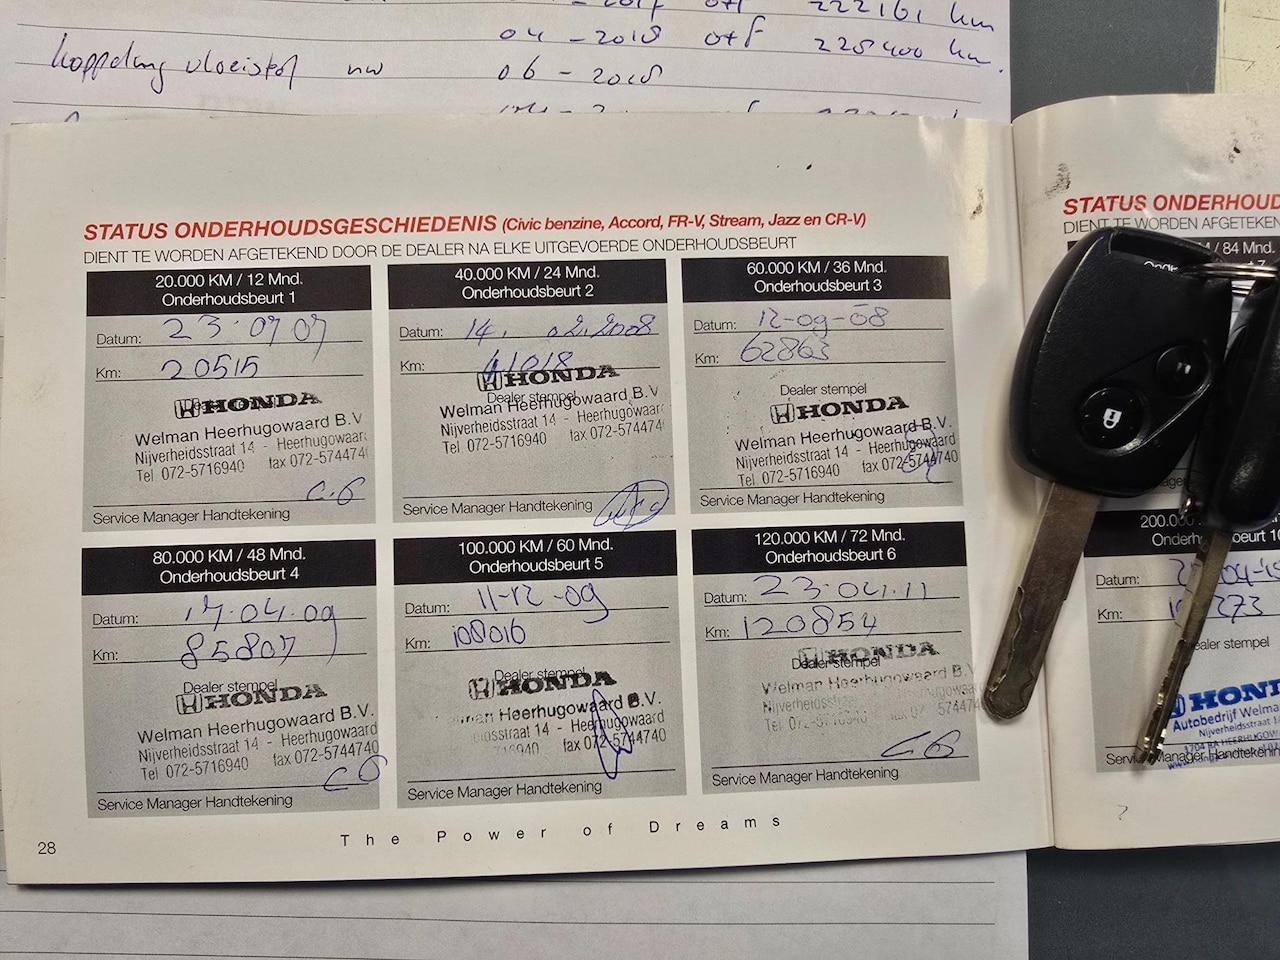 04 - 2018 otf 228400 km.
koppeling vloeistof nw 06 - 2018
STATUS ONDERHOUDSGESCHIEDENIS (Civic benzine, Accord, FR-V, Stream, Jazz en CR-V)
DIENT TE WORDEN AFGETEKEND DOOR DE DEALER NA ELKE UITGEVOERDE ONDERHOUDSBEURT
20.000 KM / 12 Mnd.
Onderhoudsbeurt 1
Datum: 23.07.07
Km: 20515
HONDA
Welman Heerhugowaard B.V.
Nijverheidsstraat 14 - Heerhugowaar
Tel 072-5716940 fax 072-5744740
C.G
Service Manager Handtekening
40.000 KM / 24 Mnd.
Onderhoudsbeurt 2
Datum: 14. 02.2008
Km: 41018
HONDA
Dealer stempel
Welman Heerhugowaard B.V
Nijverheidsstraat 14 - Heerhugowaar
Tel 072-5716940 fax 072-574474
Service Manager Handtekening
60.000 KM / 36 Mnd.
Onderhoudsbeurt 3
Datum: 12-09-08
Km: 62863
Dealer stempel
HONDA
Welman Heerhugowaard B.V.
Nijverheidsstraat 14 - Heerhugowaard
Tel 072-5716940 fax 072-5744740
Service Manager Handtekening
80.000 KM / 48 Mnd.
Onderhoudsbeurt 4
Datum: 17.04.09
Km: 85807
Dealer stempel
HONDA
Welman Heerhugowaard B.V.
Nijverheidsstraat 14 - Heerhugowaard
Tel 072-5716940 fax 072-5744740
CG
Service Manager Handtekening
100.000 KM / 60 Mnd.
Onderhoudsbeurt 5
Datum: 11-12-09
Km: 100016
Dealer stempel
HONDA
man Heerhugowaard B.V.
idsstraat 14 - Heerhugowaard
716940 fax 072-5744740
Service Manager Handtekening
120.000 KM / 72 Mnd.
Onderhoudsbeurt 6
Datum: 23.04.11
Km: 120854
HONDA
Dealer stempel
Welman Heerhugowaard B.V.
Nijverheidsstr
Tel 072-5716940 fax 072 574474
CG
Service Manager Handtekening
The Power of Dreams
28
STATUS ONDERHOUD
DIENT TE WORDEN AFGETEKEN
/ 84 Mnd.
200.00
Datum:
Km: 273
ealer stempel
HON
Autobedrijf Welma
Nijverheidsstraat 1
Manager Handtekenin